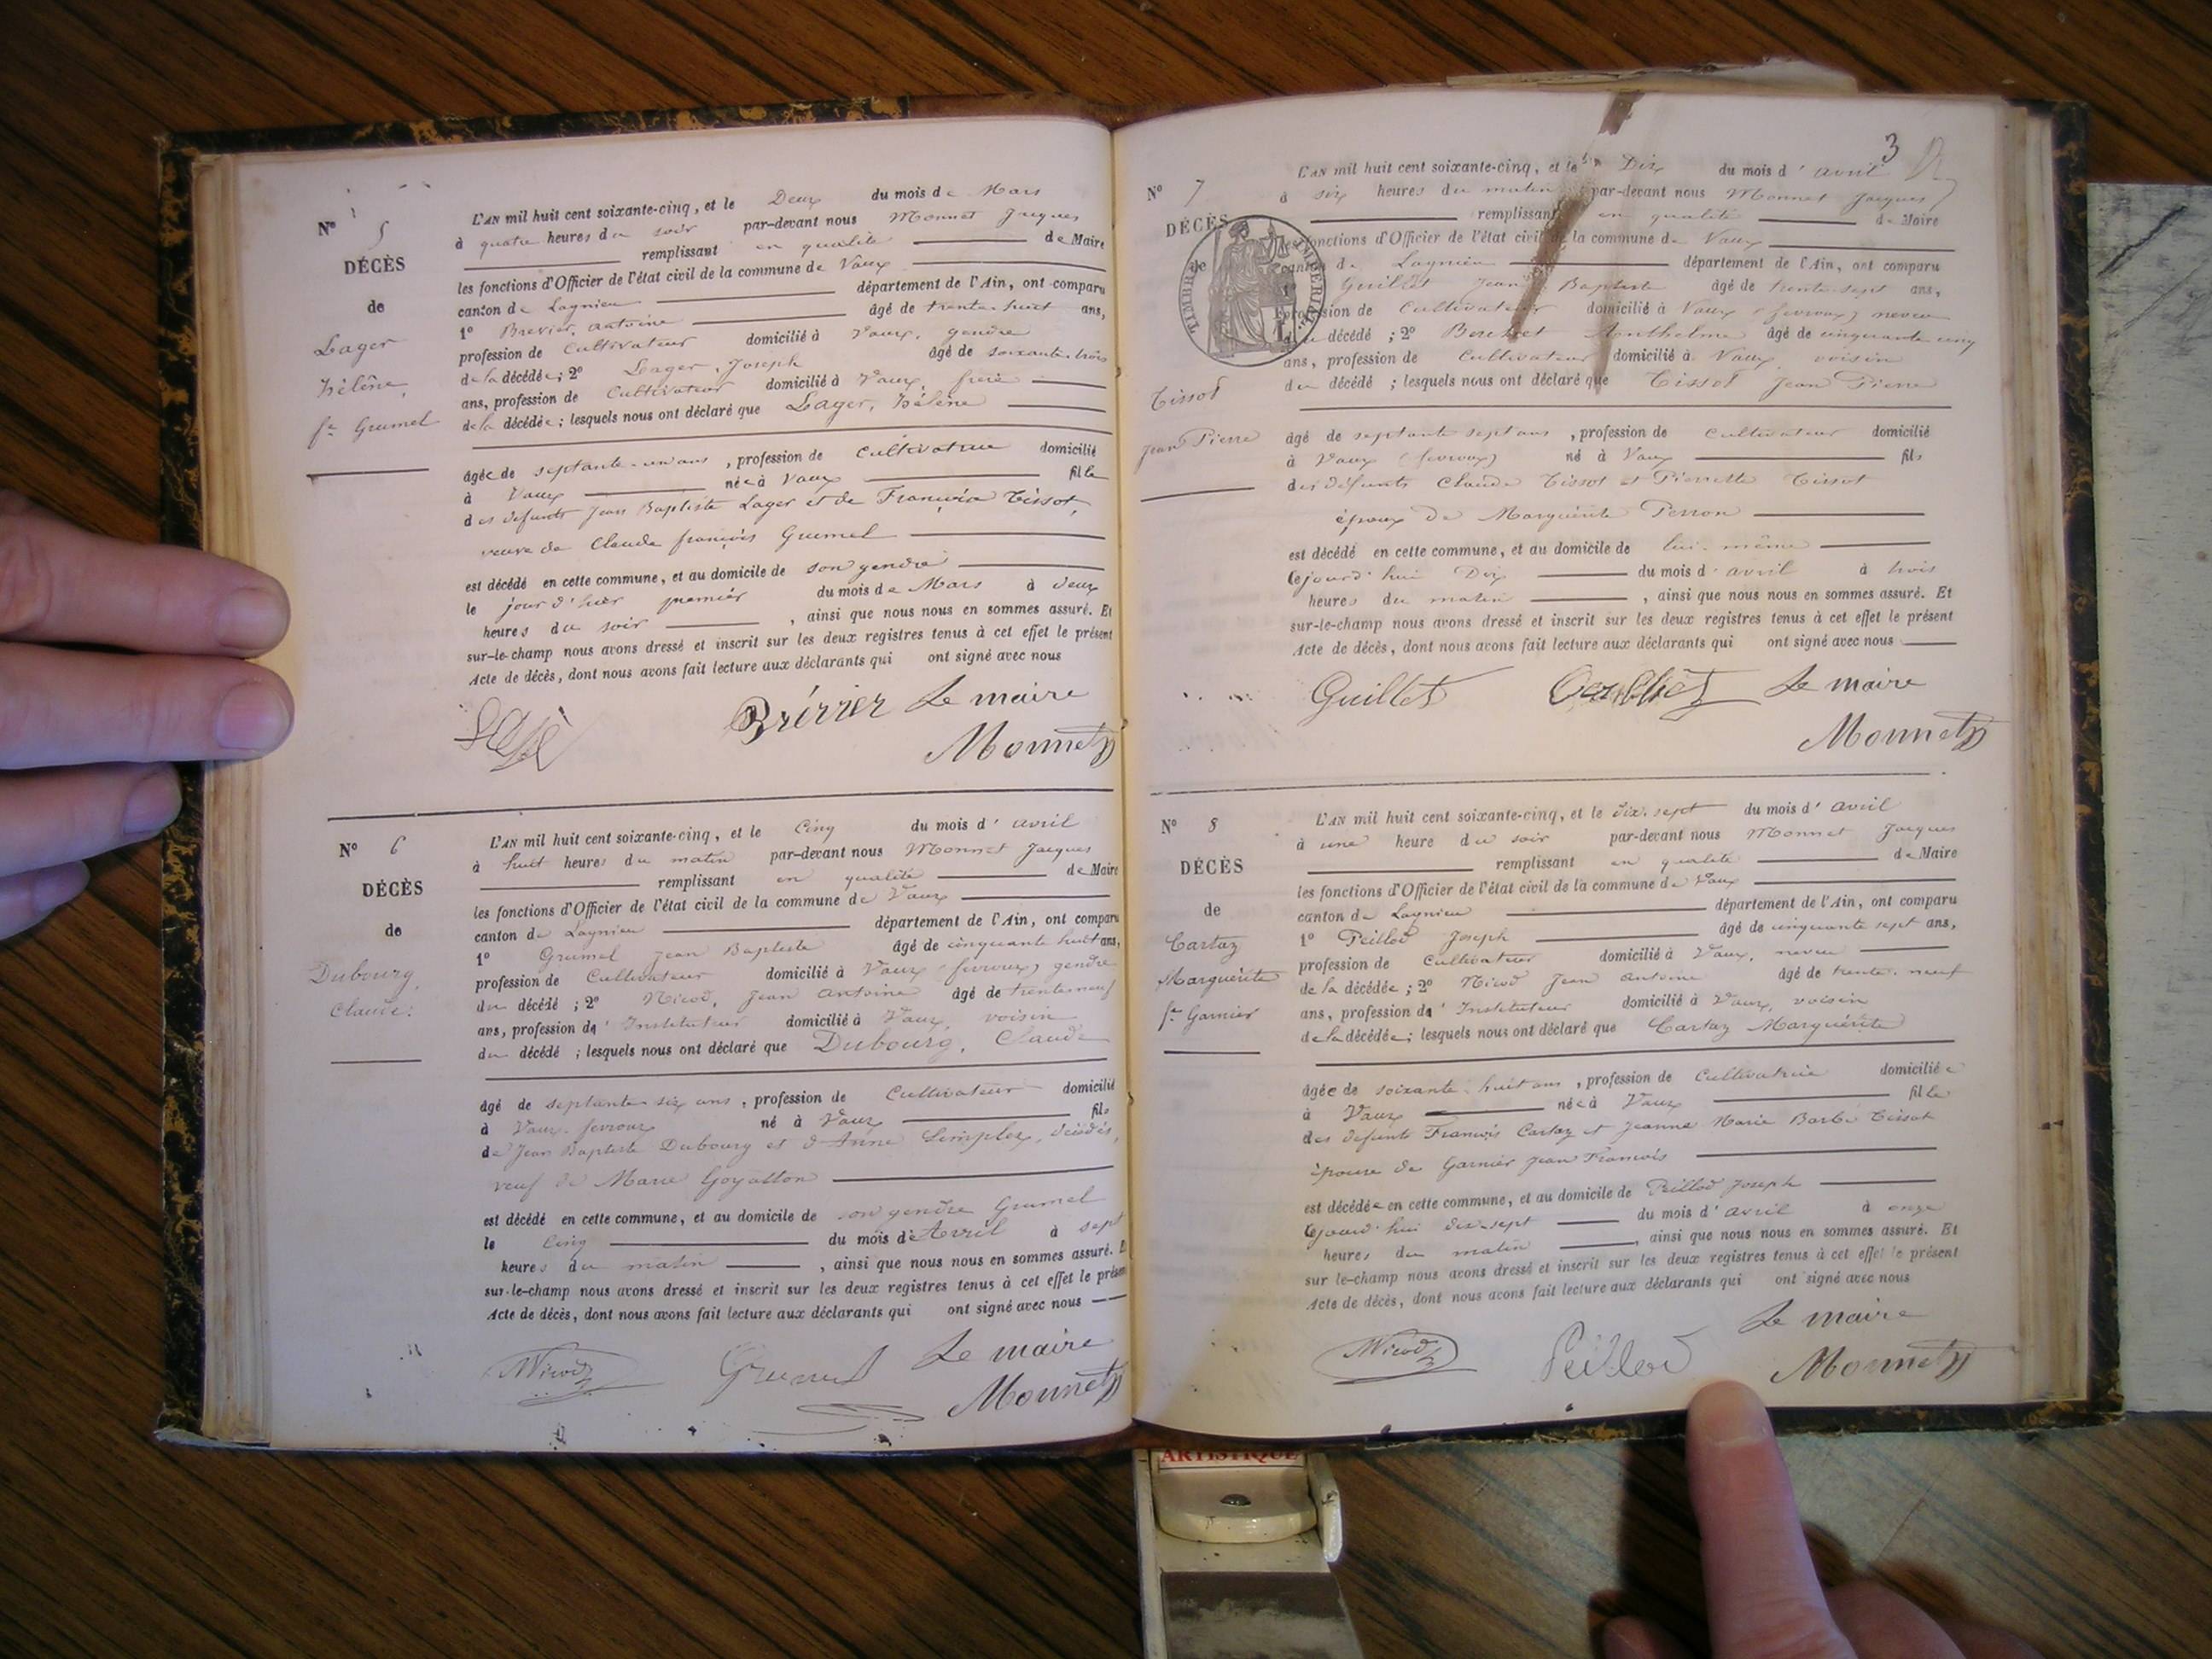 N° 5
DÉCÈS
de
Lager
hélène,
fe Grumel
L'AN mil huit cent soixante-cinq, et le Deux du mois de Mars
à quatre heures du soir par-devant nous Monnet Jacques
remplissant en qualité de Maire
les fonctions d'Officier de l'état civil de la commune de Vaux
canton de Lagnieu département de l'Ain, ont comparu
1° Brevier, antoine âgé de trente-huit ans,
profession de Cultivateur domicilié à Vaux, gendre
de la décédée; 2° Lager, Joseph âgé de soixante-trois
ans, profession de Cultivateur domicilié à Vaux, frère
de la décédée; lesquels nous ont déclaré que Lager, hélène
âgée de septante-un ans, profession de Cultivatrice domicilié
à Vaux née à Vaux fille
des défunts Jean Baptiste Lager et de Françoise Tissot,
veuve de Claude françois Grumel
est décédé en cette commune, et au domicile de son gendre
le jour d'hier premier du mois de Mars à deux
heures du soir, ainsi que nous nous en sommes assuré. Et
sur-le-champ nous avons dressé et inscrit sur les deux registres tenus à cet effet le présent
Acte de décès, dont nous avons fait lecture aux déclarants qui ont signé avec nous
Brévier Le maire
Monnet
N° 6
DÉCÈS
de
Dubourg,
Claude.
L'AN mil huit cent soixante-cinq, et le Cinq du mois d'avril
à huit heures du matin par-devant nous Monnet Jacques
remplissant en qualité de Maire
les fonctions d'Officier de l'état civil de la commune de Vaux
canton de Lagnieu département de l'Ain, ont comparu
1° Grumel Jean Baptiste âgé de cinquante huit ans,
profession de Cultivateur domicilié à Vaux (fevroux) gendre
du décédé; 2° Nicod, Jean antoine âgé de trente neuf
ans, profession d'Instituteur domicilié à Vaux, voisin
du décédé; lesquels nous ont déclaré que Dubourg, Claude
âgé de septante-six ans, profession de Cultivateur domicilié
à Vaux-fevroux né à Vaux fils
de Jean Baptiste Dubourg et d'Anne Simplex, décédés,
veuf de Marie Goyatton
est décédé en cette commune, et au domicile de son gendre Grumel
le Cinq du mois d'Avril à sept
heures du matin, ainsi que nous nous en sommes assuré. E
sur-le-champ nous avons dressé et inscrit sur les deux registres tenus à cet effet le présen
Acte de décès, dont nous avons fait lecture aux déclarants qui ont signé avec nous
Nicod Grumel Le maire
Monnet
3
N° 7
DÉCÈS
de
TIMBRE IMPÉRIAL
Tissot
Jean Pierre
L'AN mil huit cent soixante-cinq, et le Dix du mois d'avril
à six heures du matin par-devant nous Monnet Jacques
remplissant en qualité de Maire
les fonctions d'Officier de l'état civil de la commune de Vaux
canton de Lagnieu département de l'Ain, ont comparu
Guillet Jean Baptiste âgé de trente-sept ans,
profession de Cultivateur domicilié à Vaux (fevroux) neveu
du décédé; 2° Anthelme âgé de cinquante cinq
ans, profession de Cultivateur domicilié à Vaux, voisin
du décédé; lesquels nous ont déclaré que Tissot Jean Pierre
âgé de septante sept ans, profession de Cultivateur domicilié
à Vaux (fevroux) né à Vaux fils
des défunts Claude Tissot et Pierrette Tissot
époux de Marguerite Perron
est décédé en cette commune, et au domicile de lui-même
cejourd'hui Dix du mois d'avril à trois
heures du matin, ainsi que nous nous en sommes assuré. Et
sur-le-champ nous avons dressé et inscrit sur les deux registres tenus à cet effet le présent
Acte de décès, dont nous avons fait lecture aux déclarants qui ont signé avec nous
Guillet Le maire
Monnet
N° 8
DÉCÈS
de
Cartaz
Marguérite
fe Garnier
L'AN mil huit cent soixante-cinq, et le dix-sept du mois d'avril
à une heure du soir par-devant nous Monnet Jacques
remplissant en qualité de Maire
les fonctions d'Officier de l'état civil de la commune de Vaux
canton de Lagnieu département de l'Ain, ont comparu
1° Peillod Joseph âgé de cinquante sept ans,
profession de Cultivateur domicilié à Vaux, neveu
de la décédée; 2° Nicod Jean antoine âgé de trente-neuf
ans, profession d'Instituteur domicilié à Vaux, voisin
de la décédée; lesquels nous ont déclaré que Cartaz Marguérite
âgée de soixante-huit ans, profession de Cultivatrice domiciliée
à Vaux née à Vaux fille
des défunts François Cartaz et Jeanne Marie Barbe Tissot
épouse de Garnier Jean François
est décédée en cette commune, et au domicile de Peillod Joseph
cejourd'hui dix-sept du mois d'avril à onze
heures du matin, ainsi que nous nous en sommes assuré. Et
sur le-champ nous avons dressé et inscrit sur les deux registres tenus à cet effet le présent
Acte de décès, dont nous avons fait lecture aux déclarants qui ont signé avec nous
Nicod Peillod Le maire
Monnet
ARTISTIQUE